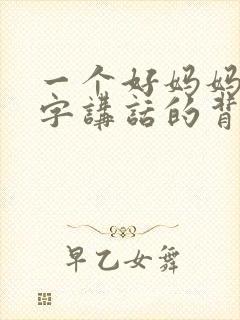 一个好妈妈
字講話的背
早乙女舞